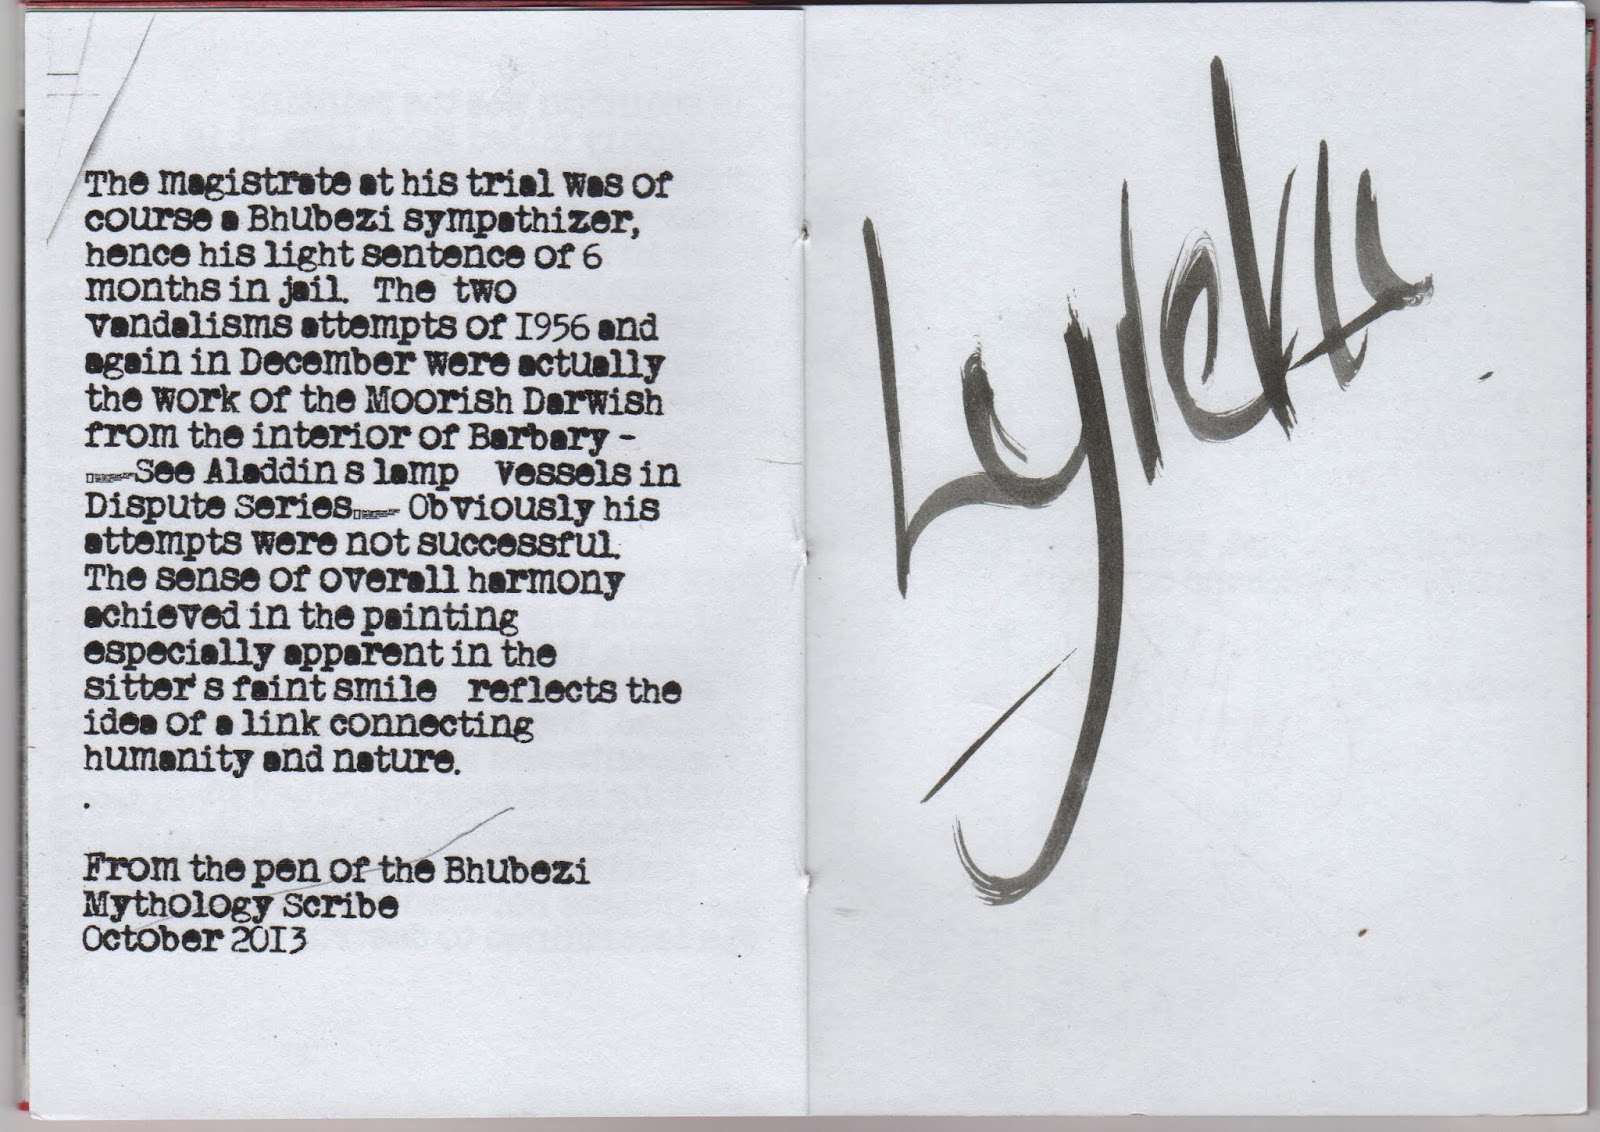 The magistrate at his trial was of
course a Bhubezi sympathizer,
hence his light sentence of 6
months in jail. The two
vandalisms attempts of 1956 and
again in December were actually
the work of the Moorish Darwish
from the interior of Barbary -
See Aladdin s lamp Vessels in
Dispute Series Obviously his
attempts were not successful.
The sense of overall harmony
achieved in the painting
especially apparent in the
sitter's faint smile reflects the
idea of a link connecting
humanity and nature.
.
From the pen of the Bhubezi
Mythology Scribe
October 2013